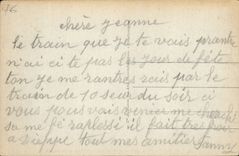 76
chère Jeanne
le train que je te vais prantre
n'ai ci te pas les jour de féte
ton je me rantres rais par le
train de 10 eur du soir ci
vous pous vais venire me cherché
sa me fé raplessi il fait tres
a Dieppe tout mes amitier Fanny